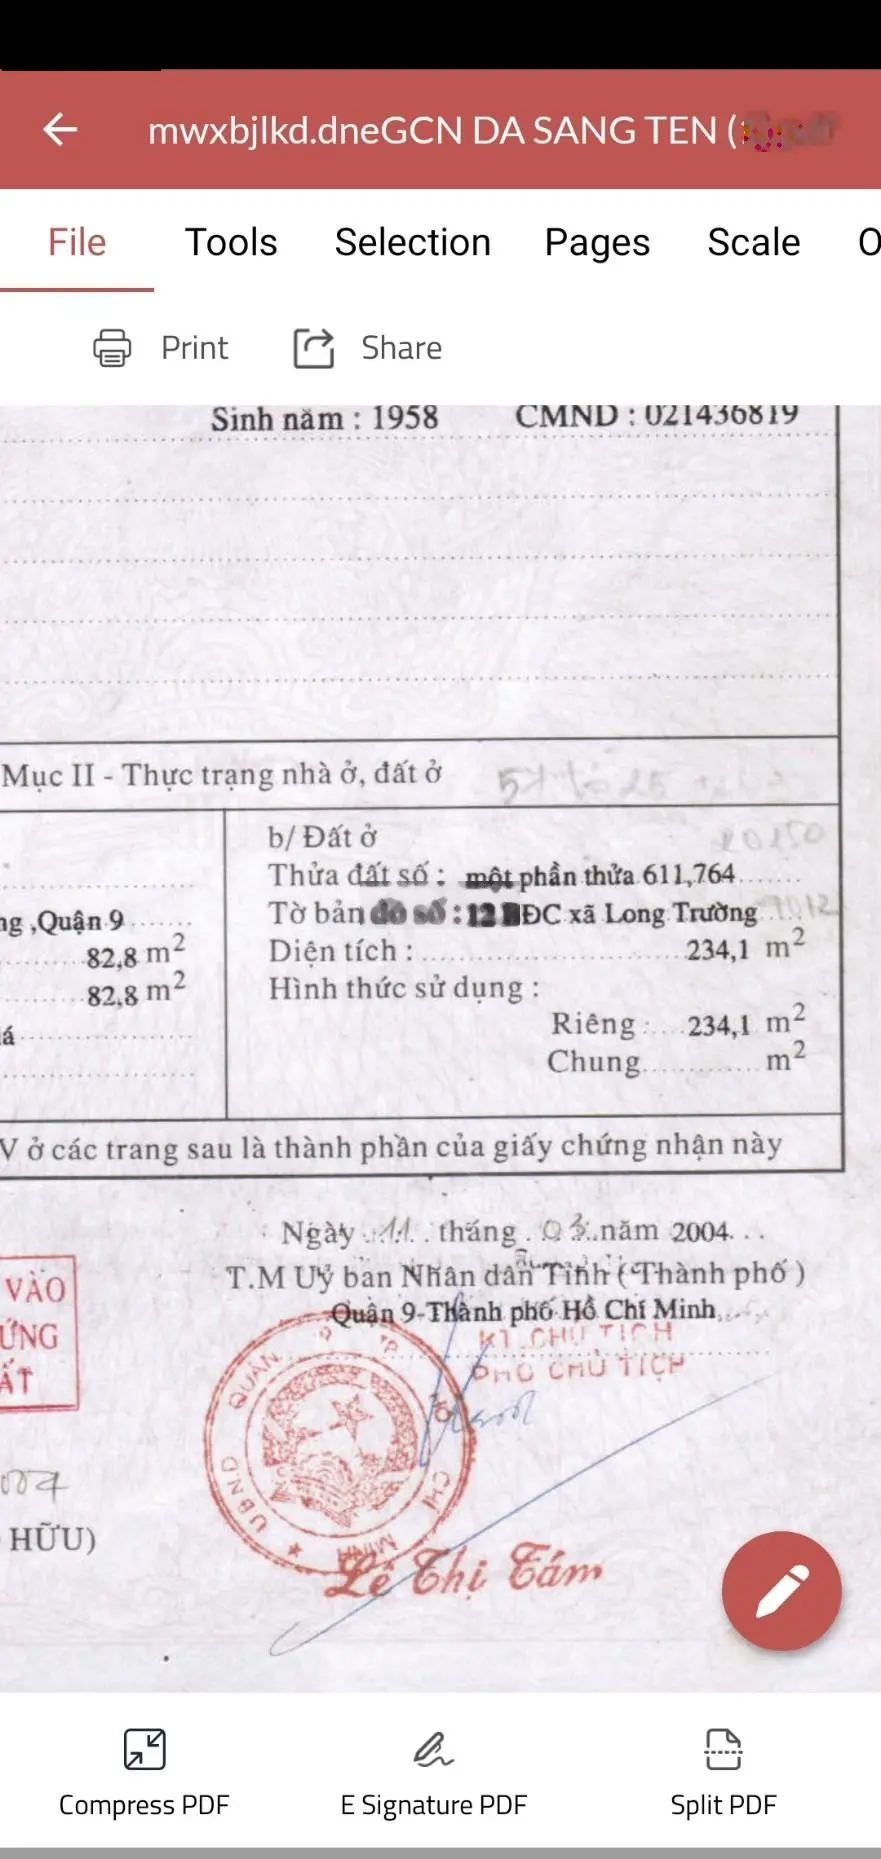 mwxbjlkd.dneGCN DA SANG TEN (
File Tools Selection Pages Scale O
Print Share
Sinh năm : 1958 CMND : 021436819
Mục II - Thực trạng nhà ở, đất ở
b/ Đất ở
Thửa đất số : một phần thửa 611,764
ng ,Quận 9 Tờ bản đồ số : 12 BĐC xã Long Trường
82,8 m² Diện tích : 234,1 m²
82,8 m² Hình thức sử dụng :
Riêng : 234,1 m²
á
Chung m²
V ở các trang sau là thành phần của giấy chứng nhận này
Ngày 11 tháng 03 năm 2004
T.M Uỷ ban Nhân dân Tỉnh ( Thành phố )
Quận 9-Thành phố Hồ Chí Minh
VÀO
ỨNG
ẤT
KT CHỦ TỊCH
PHÓ CHỦ TỊCH
UBND QUẬN 9 TP HỒ CHÍ MINH
HỮU)
Lê Thị Tám
Compress PDF E Signature PDF Split PDF